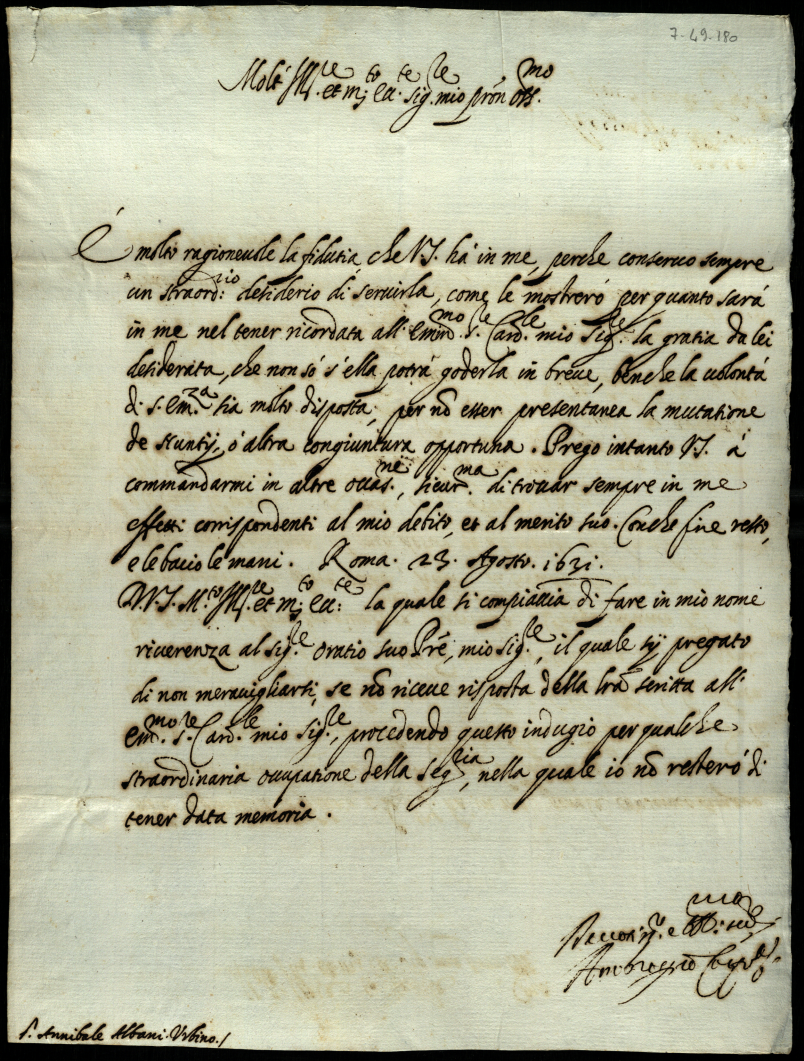 7-49-180
Molt' Ill.re et m.to Ecc.te Sig.re mio prōn oss.mo
É molto ragioneuole la fidutia che V.S. há in me, perche conseruo sempre
un straord.rio: desiderio di seruirla, come le mostreró per quanto sará
in me nel tener ricordata all' Emin.mo S.re Card.le mio Sig.re la gratia da lei
desiderata, che non só s'ella potrá goderla in breue, benche la uolontá
di S. Em.za sia molto disposta, per nō esser presentanea la mutatione
de Nuntij, ó altra congiuntura opportuna. Prego intanto V.S. á
commandarmi in altre occas.ne, sicur.ma di trouar sempre in me
effetti corrispondenti al mio debito, et al merito suo. Con che fine resto,
e le bacio le mani. Roma. 23. Agosto. 1631.
D.V.S. M.to Ill.re et m.to Ecc.te: la quale si compiaccia di fare in mio nome
riuerenza al Sig.re Oratio suo Pr̄e, mio Sig.re, il quale sij pregato
di non merauigliarsi, se nō riceue risposta della lr̄a scritta all'
Em.mo S.re Card.le mio Sig.re, procedendo questo indugio per qualche
straordinaria occupatione della Seg.ria, nella quale io nō resteró di
tener data memoria.
S.r Annibale Albani. Vrbino./